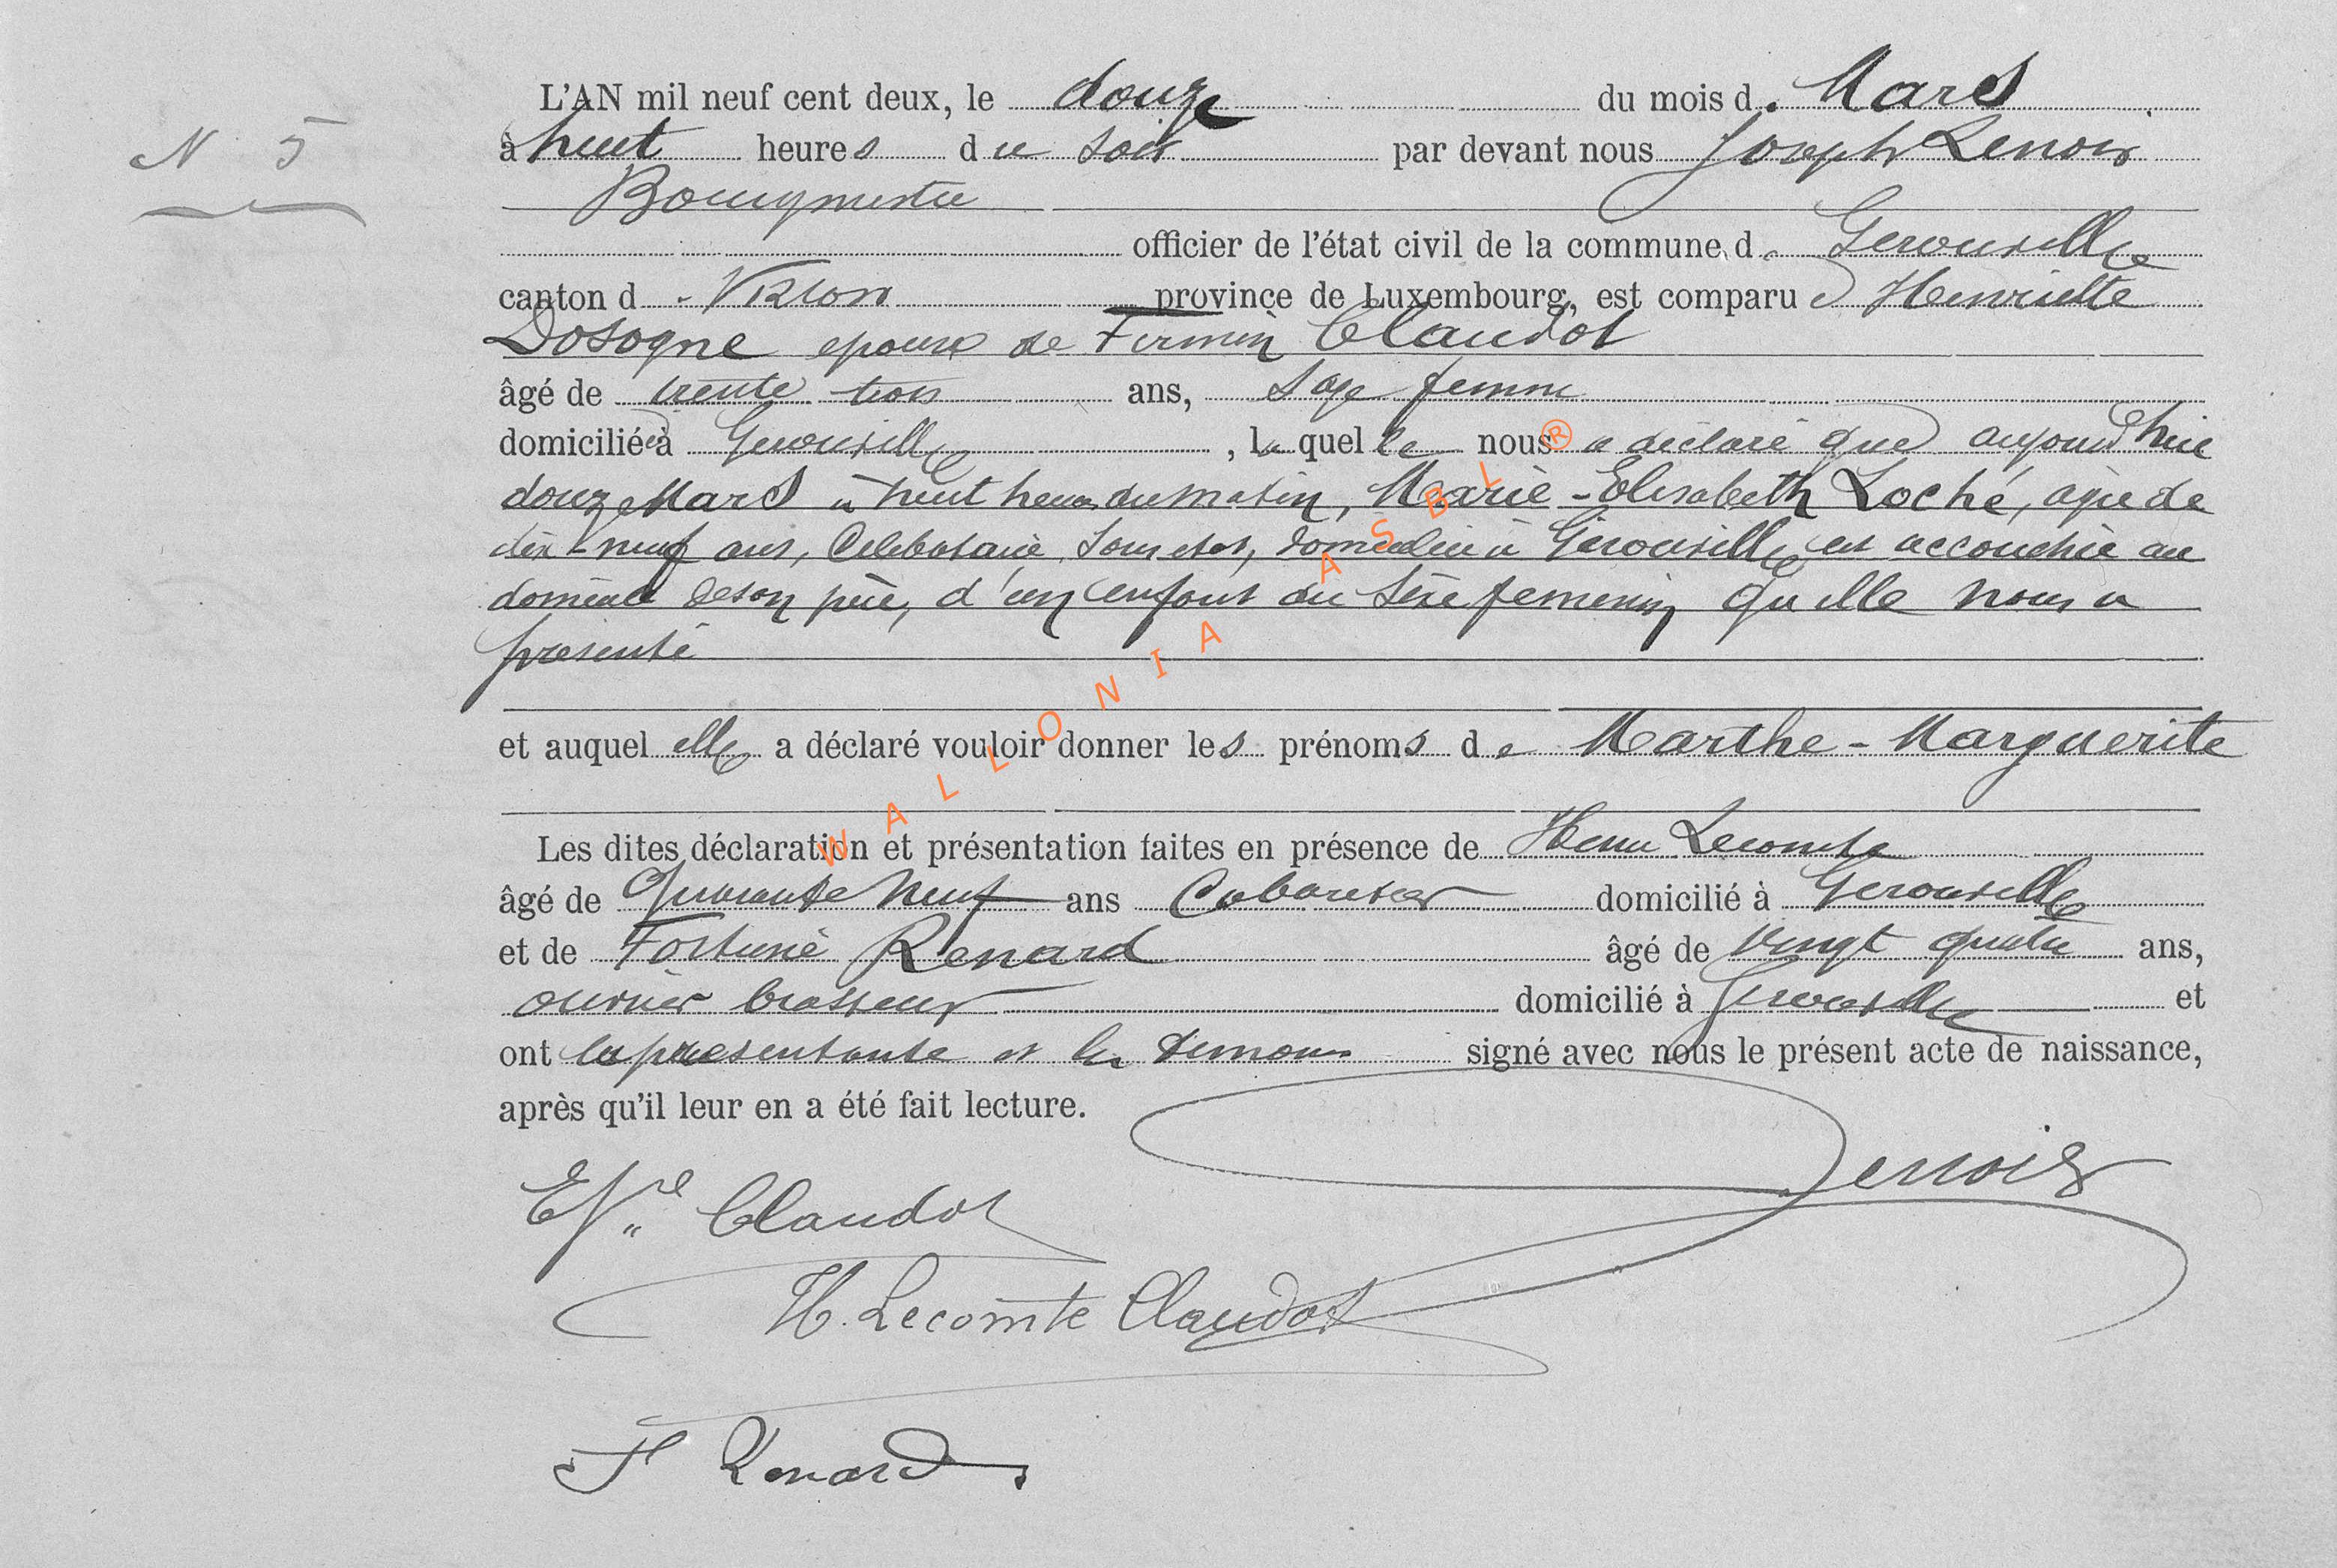 L'AN mil neuf cent deux, le douze du mois de Mars
N 5
à huit heures du soir par devant nous Joseph Lenoir
Bourgmestre
officier de l'état civil de la commune de Gerouville
canton de Virton province de Luxembourg, est comparue Henriette
Dosogne epouse de Firmin Claudot
âgé de trente trois ans, sage femme
domiciliée à Gerouville, laquelle nous a déclaré que aujourd'hui
douze Mars à huit heures du matin, Marie-Elisabeth Loché, agée de
dix-neuf ans, Celibataire, sans etat, domiciliée à Gérouville est accouchée au
domicile de son père, d'un enfant du sèxe feminin qu'elle nous a
presenté
et auquel elle a déclaré vouloir donner les prénoms de Marthe-Marguerite
Les dites déclaration et présentation faites en présence de Henri Lecomte
âgé de Quarante neuf ans Cabaretier domicilié à Gerouville
et de Fortuné Renard âgé de vingt quatre ans,
ouvrier brasseur domicilié à Gerouville et
ont la présentante et les temoins signé avec nous le présent acte de naissance,
après qu'il leur en a été fait lecture.
Lenoir
Claudot
H. Lecomte Claudot
F Renard
WALLONIA ASBL ®